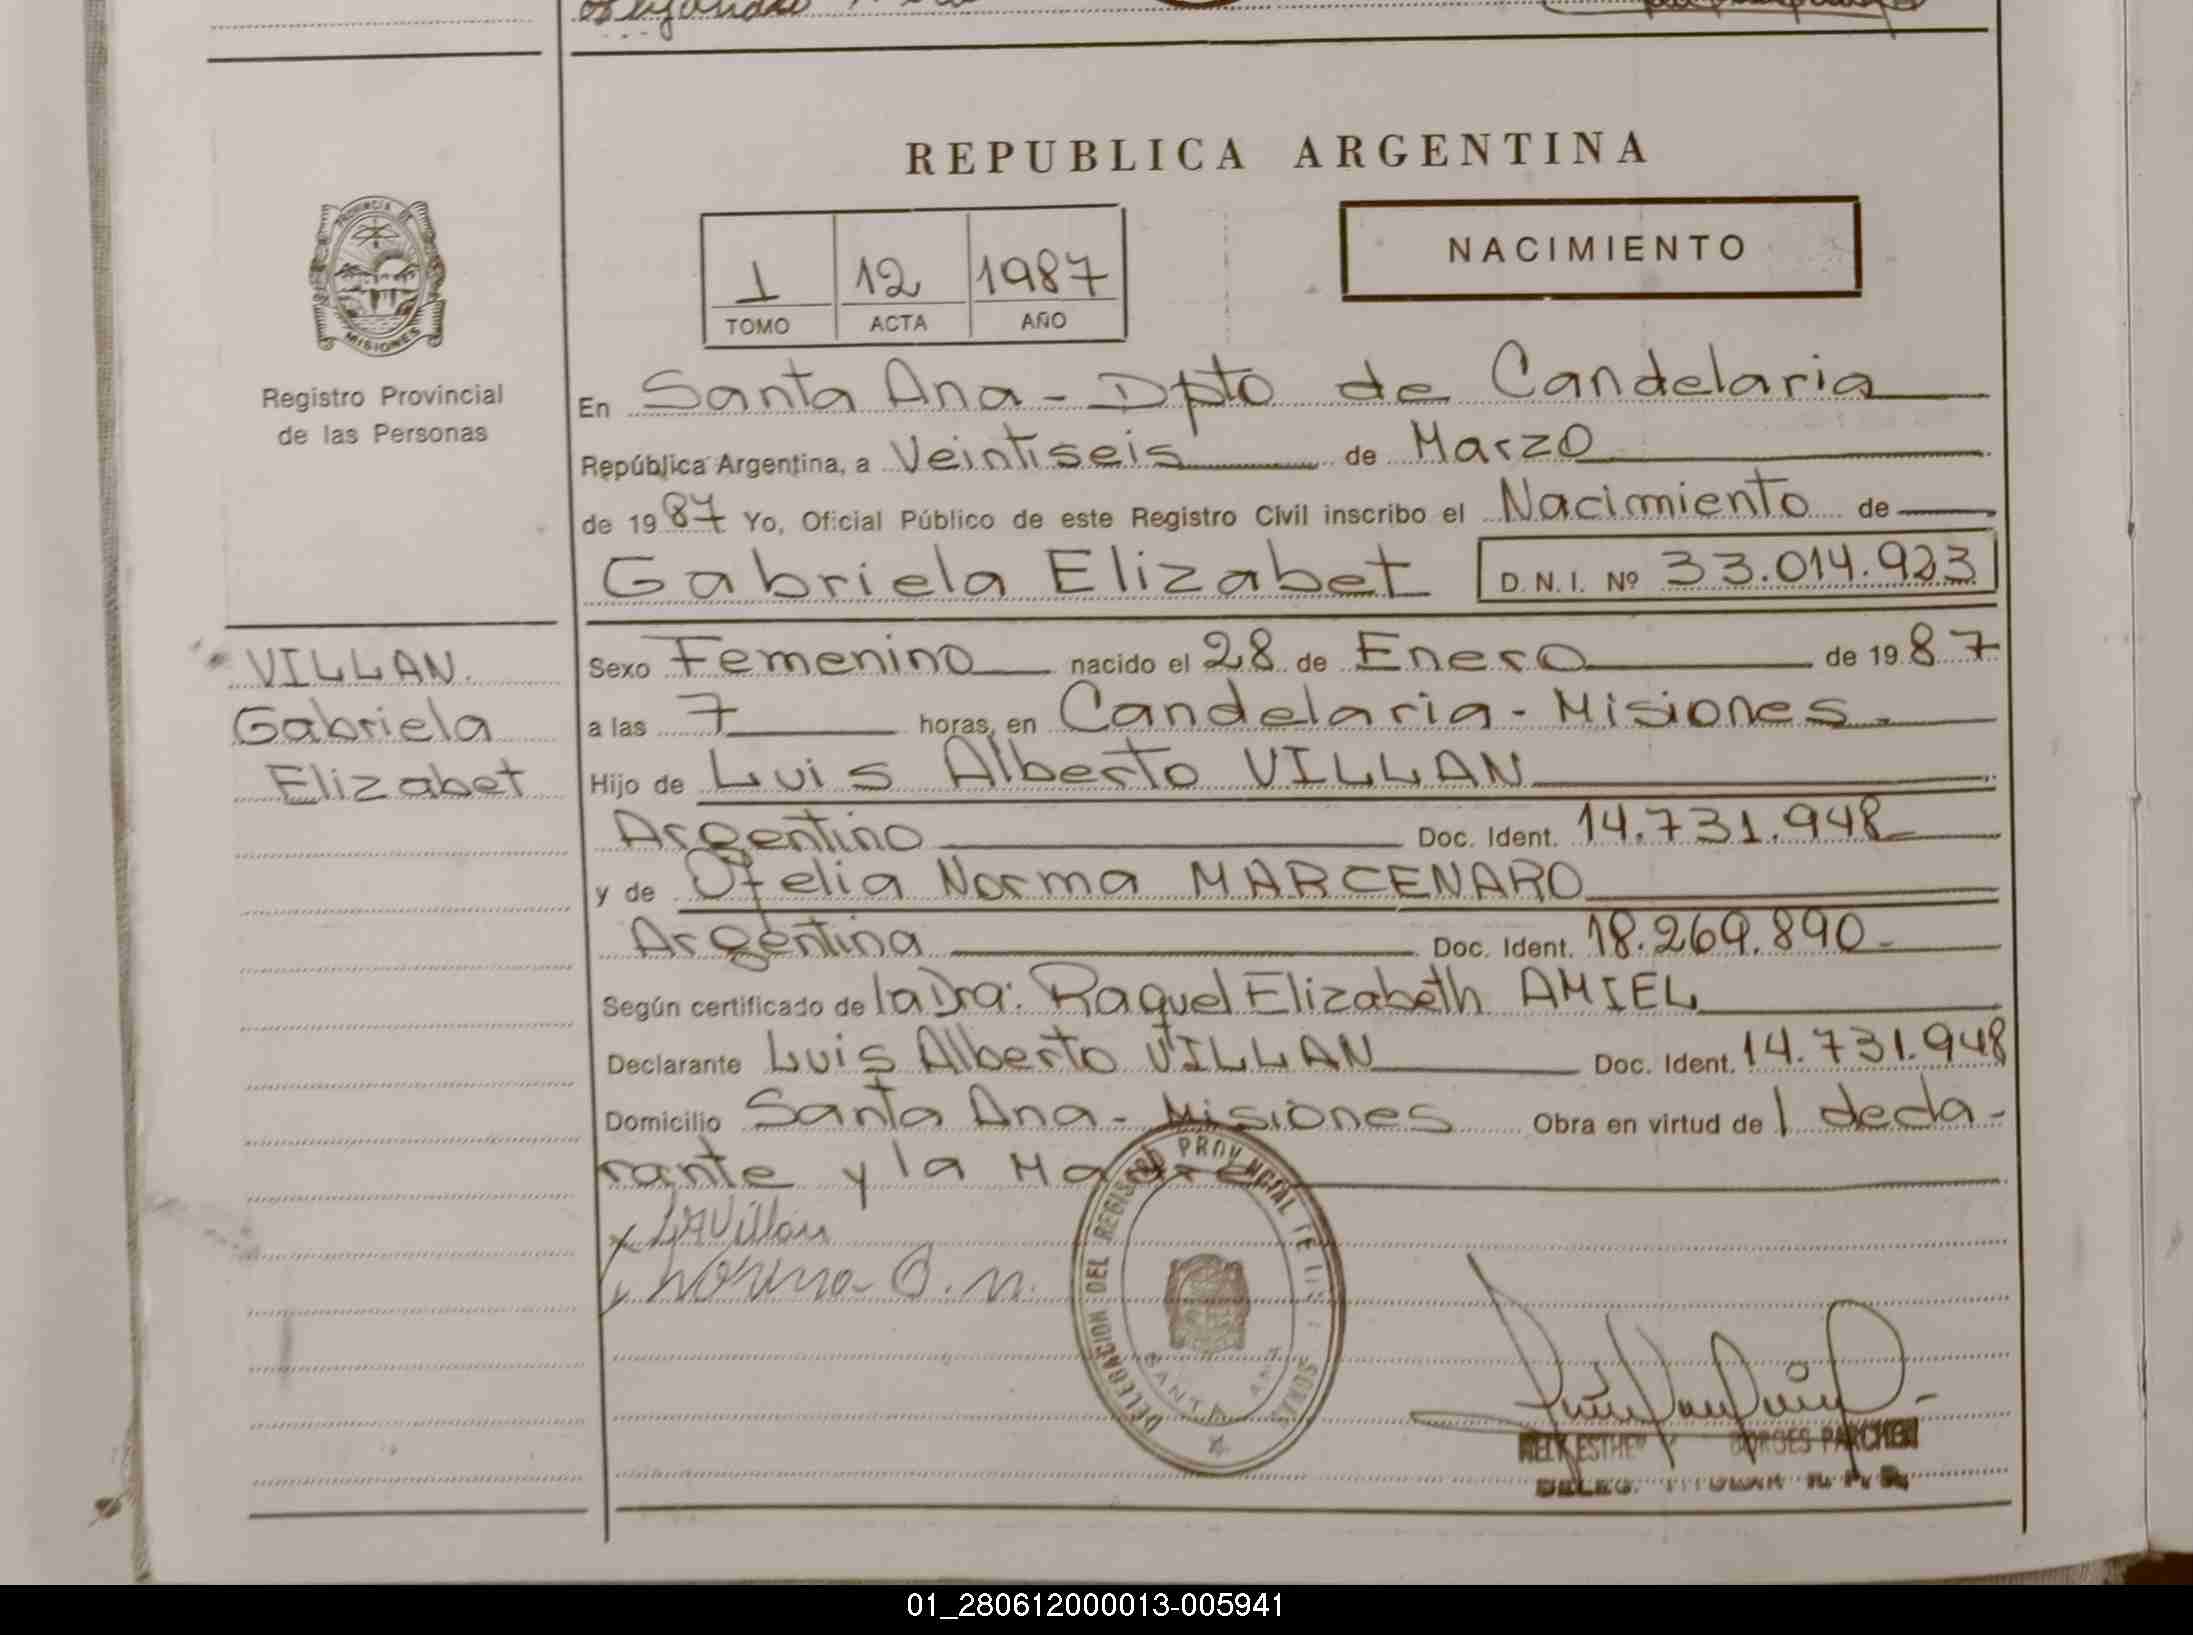 REPUBLICA ARGENTINA
PROVINCIA DE
MISIONES
Registro Provincial
de las Personas
1 12 1987
TOMO ACTA AÑO
NACIMIENTO
En Santa Ana - Dpto de Candelaria
República Argentina, a Veintiseis de Marzo
de 1987 Yo, Oficial Público de este Registro Civil inscribo el Nacimiento de
Gabriela Elizabet D.N.I. Nº 33.014.923
VILLAN.
Gabriela
Elizabet
Sexo Femenino nacido el 28 de Enero de 1987
a las 7 horas, en Candelaria - Misiones.
Hijo de Luis Alberto VILLAN
Argentino Doc. Ident. 14.731.948
y de Ofelia Norma MARCENARO
Argentina Doc. Ident. 18.269.890.
Según certificado de la Dra: Raquel Elizabeth AMIEL
Declarante Luis Alberto VILLAN Doc. Ident. 14.731.948
Domicilio Santa Ana - Misiones Obra en virtud de l decla-
rante y la Madre
LAVillan
Norma O. M.
DELEGACION DEL REGISTRO PROVINCIAL DE
SANTA ANA
NELY ESTHER BORGES PARCHEN
DELEG. TITULAR R. P. P.
01_280612000013-005941